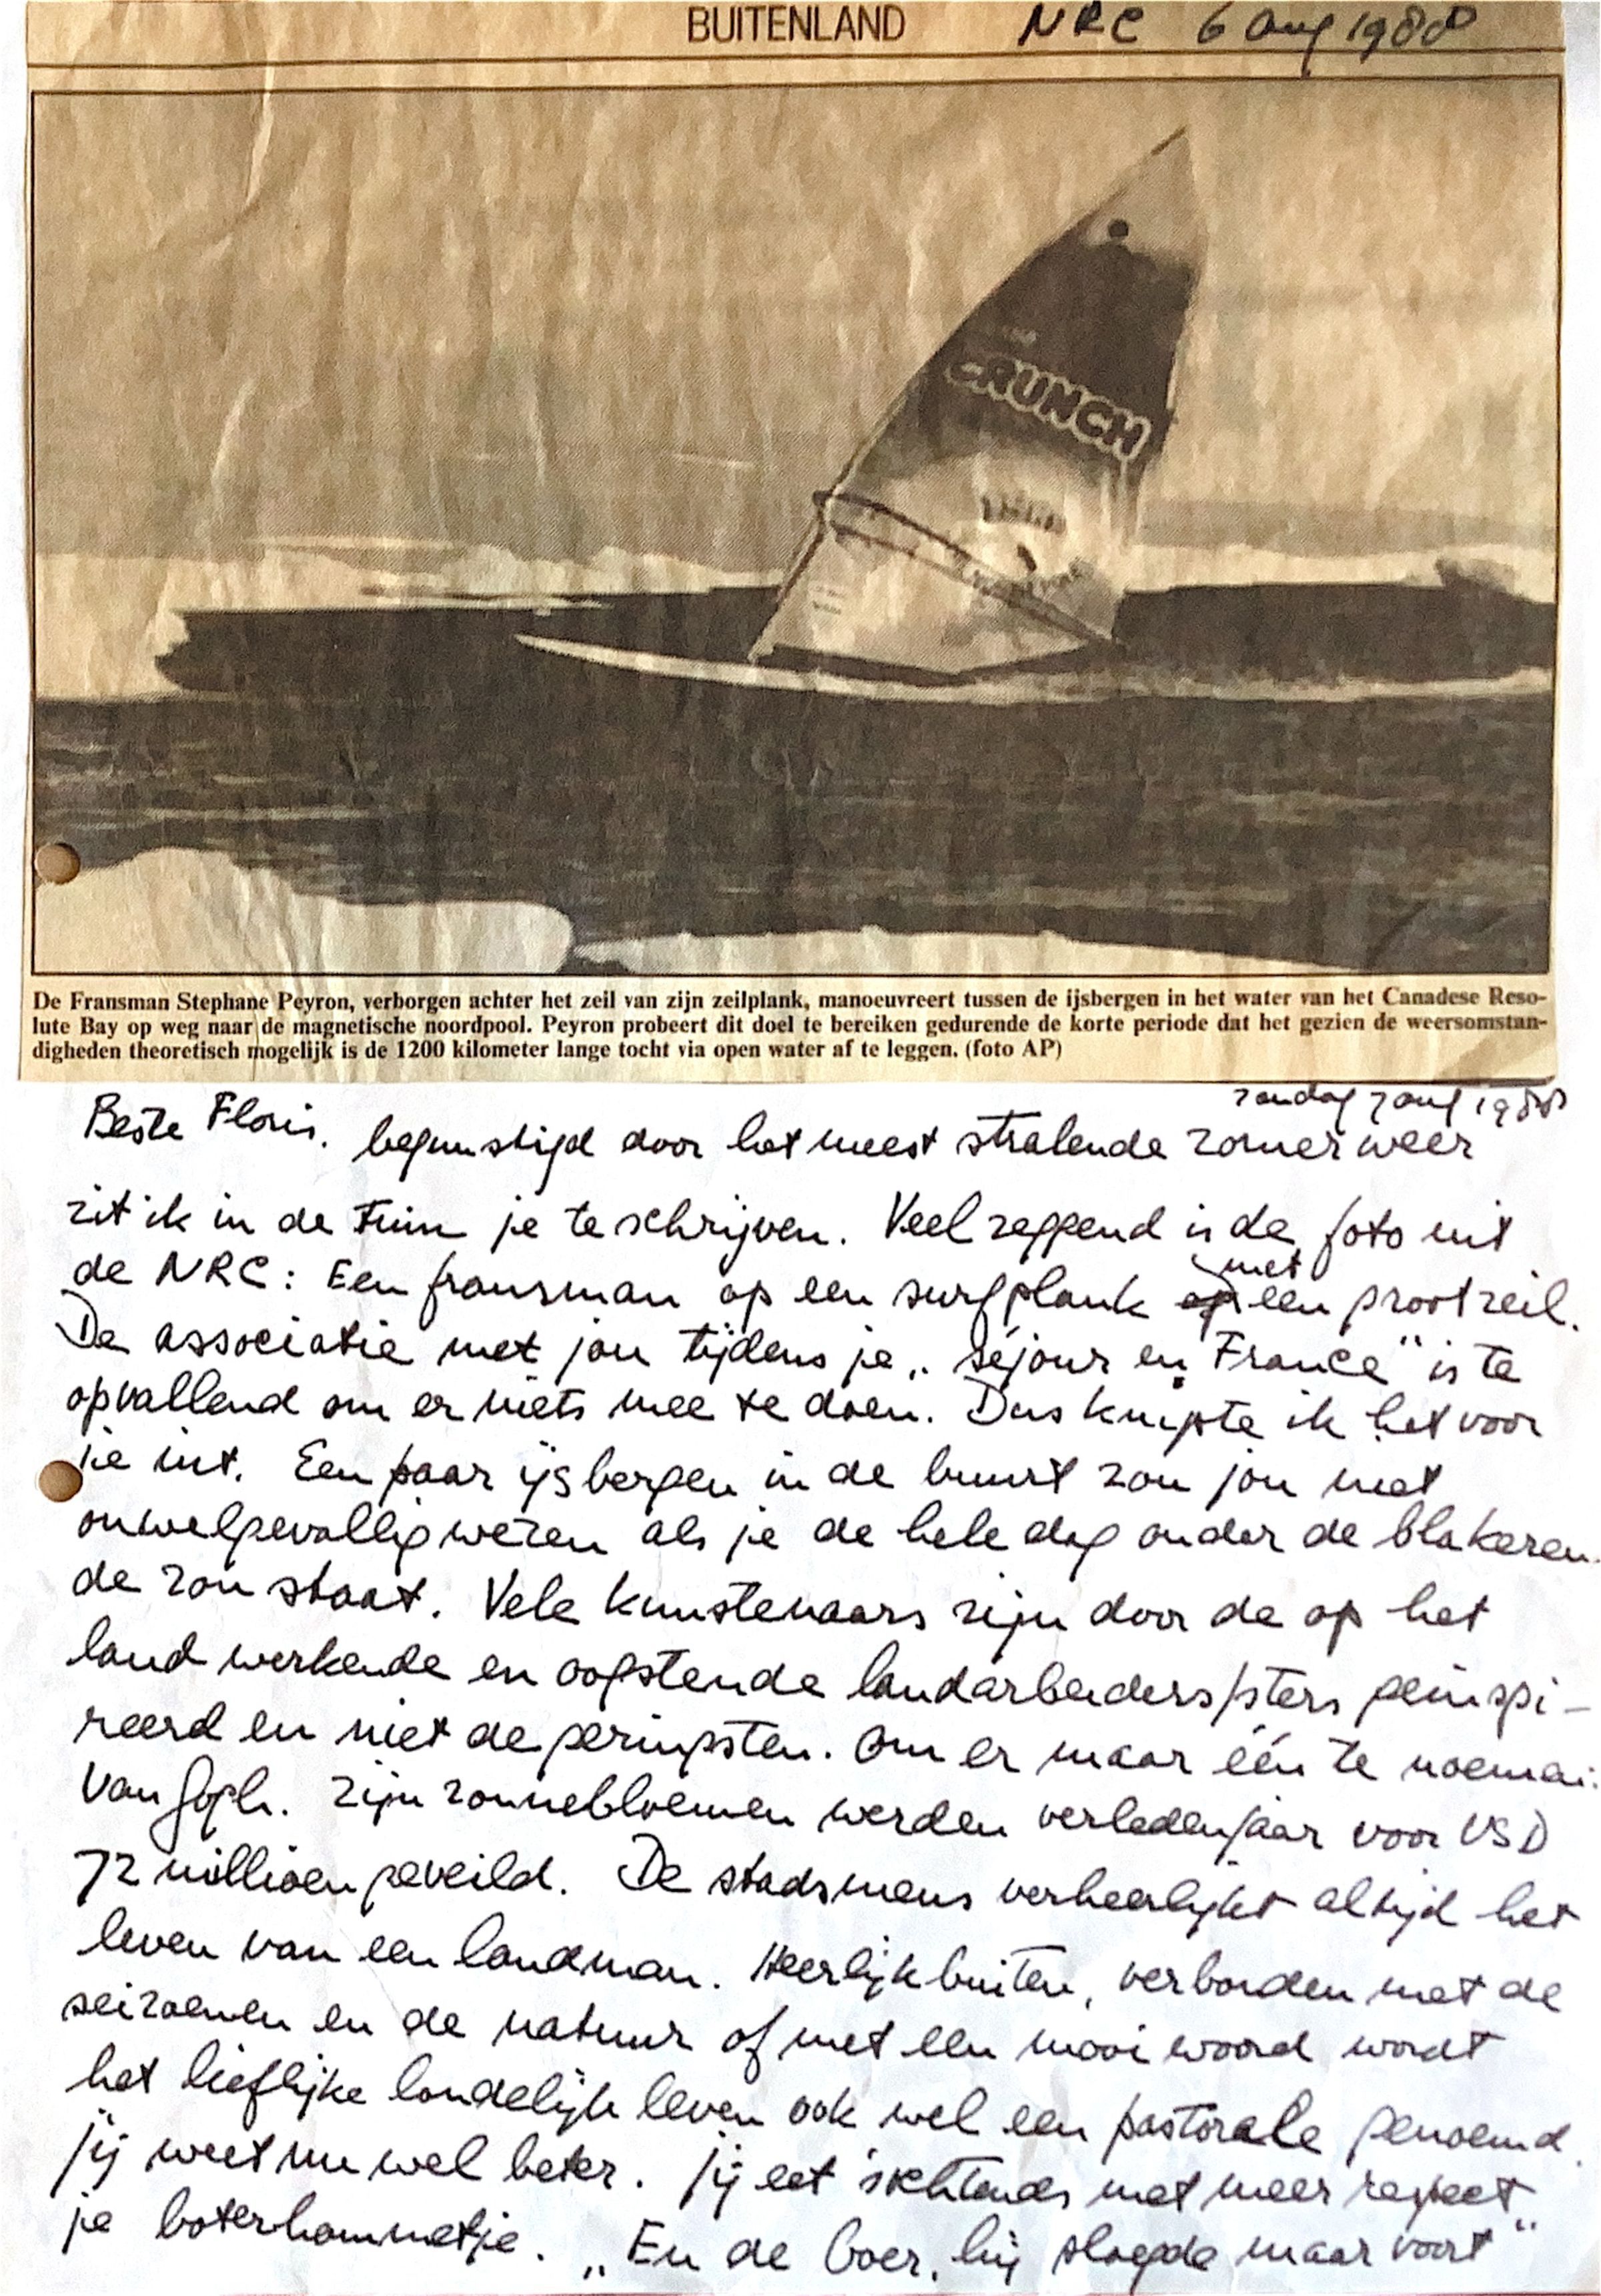 BUITENLAND NRC 6 aug 1988
CRUNCH
De Fransman Stephane Peyron, verborgen achter het zeil van zijn zeilplank, manoeuvreert tussen de ijsbergen in het water van het Canadese Reso-
lute Bay op weg naar de magnetische noordpool. Peyron probeert dit doel te bereiken gedurende de korte periode dat het gezien de weersomstan-
digheden theoretisch mogelijk is de 1200 kilometer lange tocht via open water af te leggen. (foto AP)
zondag 7 aug 1988
Beste Floris. begunstigd door het meest stralende zomerweer
zit ik in de tuin je te schrijven. Veelzeggend is de foto uit
de NRC: Een fransman op een surfplank met een grootzeil.
De associatie met jou tijdens je „séjour en France" is te
opvallend om er niets mee te doen. Dus knipte ik het voor
je uit. Een paar ijsbergen in de buurt zou jou niet
onwelgevallig wezen als je de hele dag onder de blakeren-
de zon staat. Vele kunstenaars zijn door de op het
land werkende en oogstende landarbeiders/sters geinspi-
reerd en niet de geringsten. Om er maar één te noemen:
Van Gogh. Zijn zonnebloemen werden verleden jaar voor USD
72 millioen geveild. De stadsmens verheerlijkt altijd het
leven van een landman. Heerlijk buiten, verbonden met de
seizoenen en de natuur of met een mooi woord wordt
het lieflijke landelijk leven ook wel een pastorale genoemd.
Jij weet nu wel beter. Jij eet 's ochtends met meer respect
je boterhammetje. „En de boer, hij ploegde maar voort"